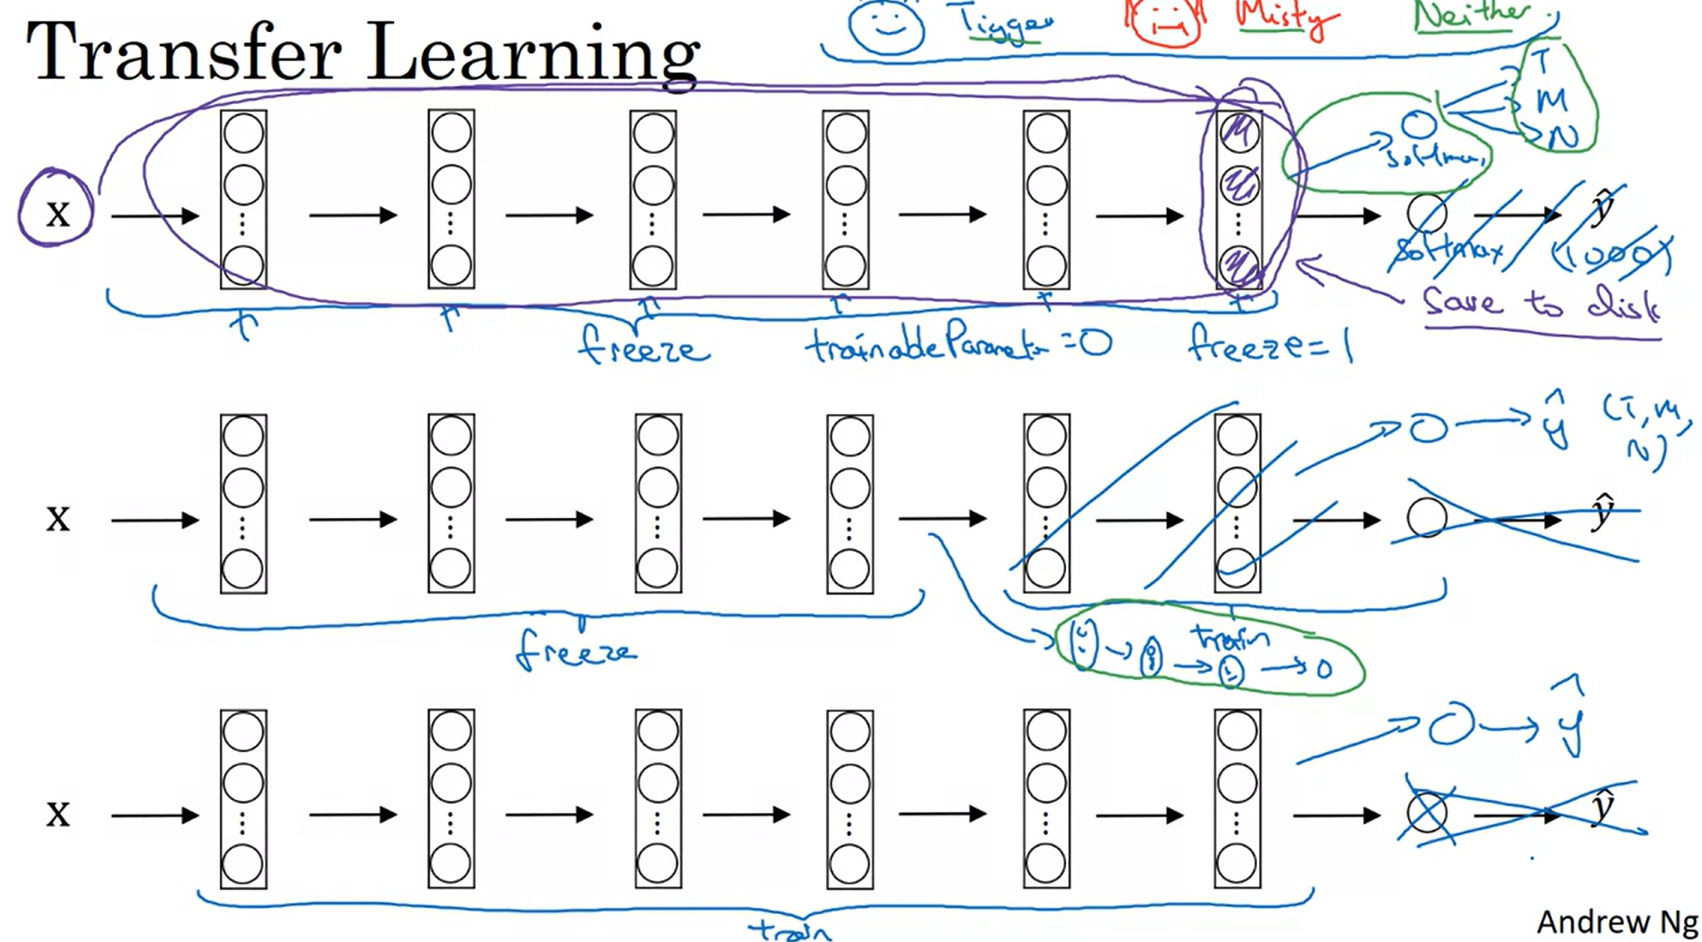 Transfer Learning
Tigger Misty Neither
T
M
N
softmax
x ŷ
softmax (1000)
Save to disk
freeze trainableParameter=0 freeze=1
ŷ (T, M,
N)
x ŷ
freeze
train
ŷ
x ŷ
train
Andrew Ng